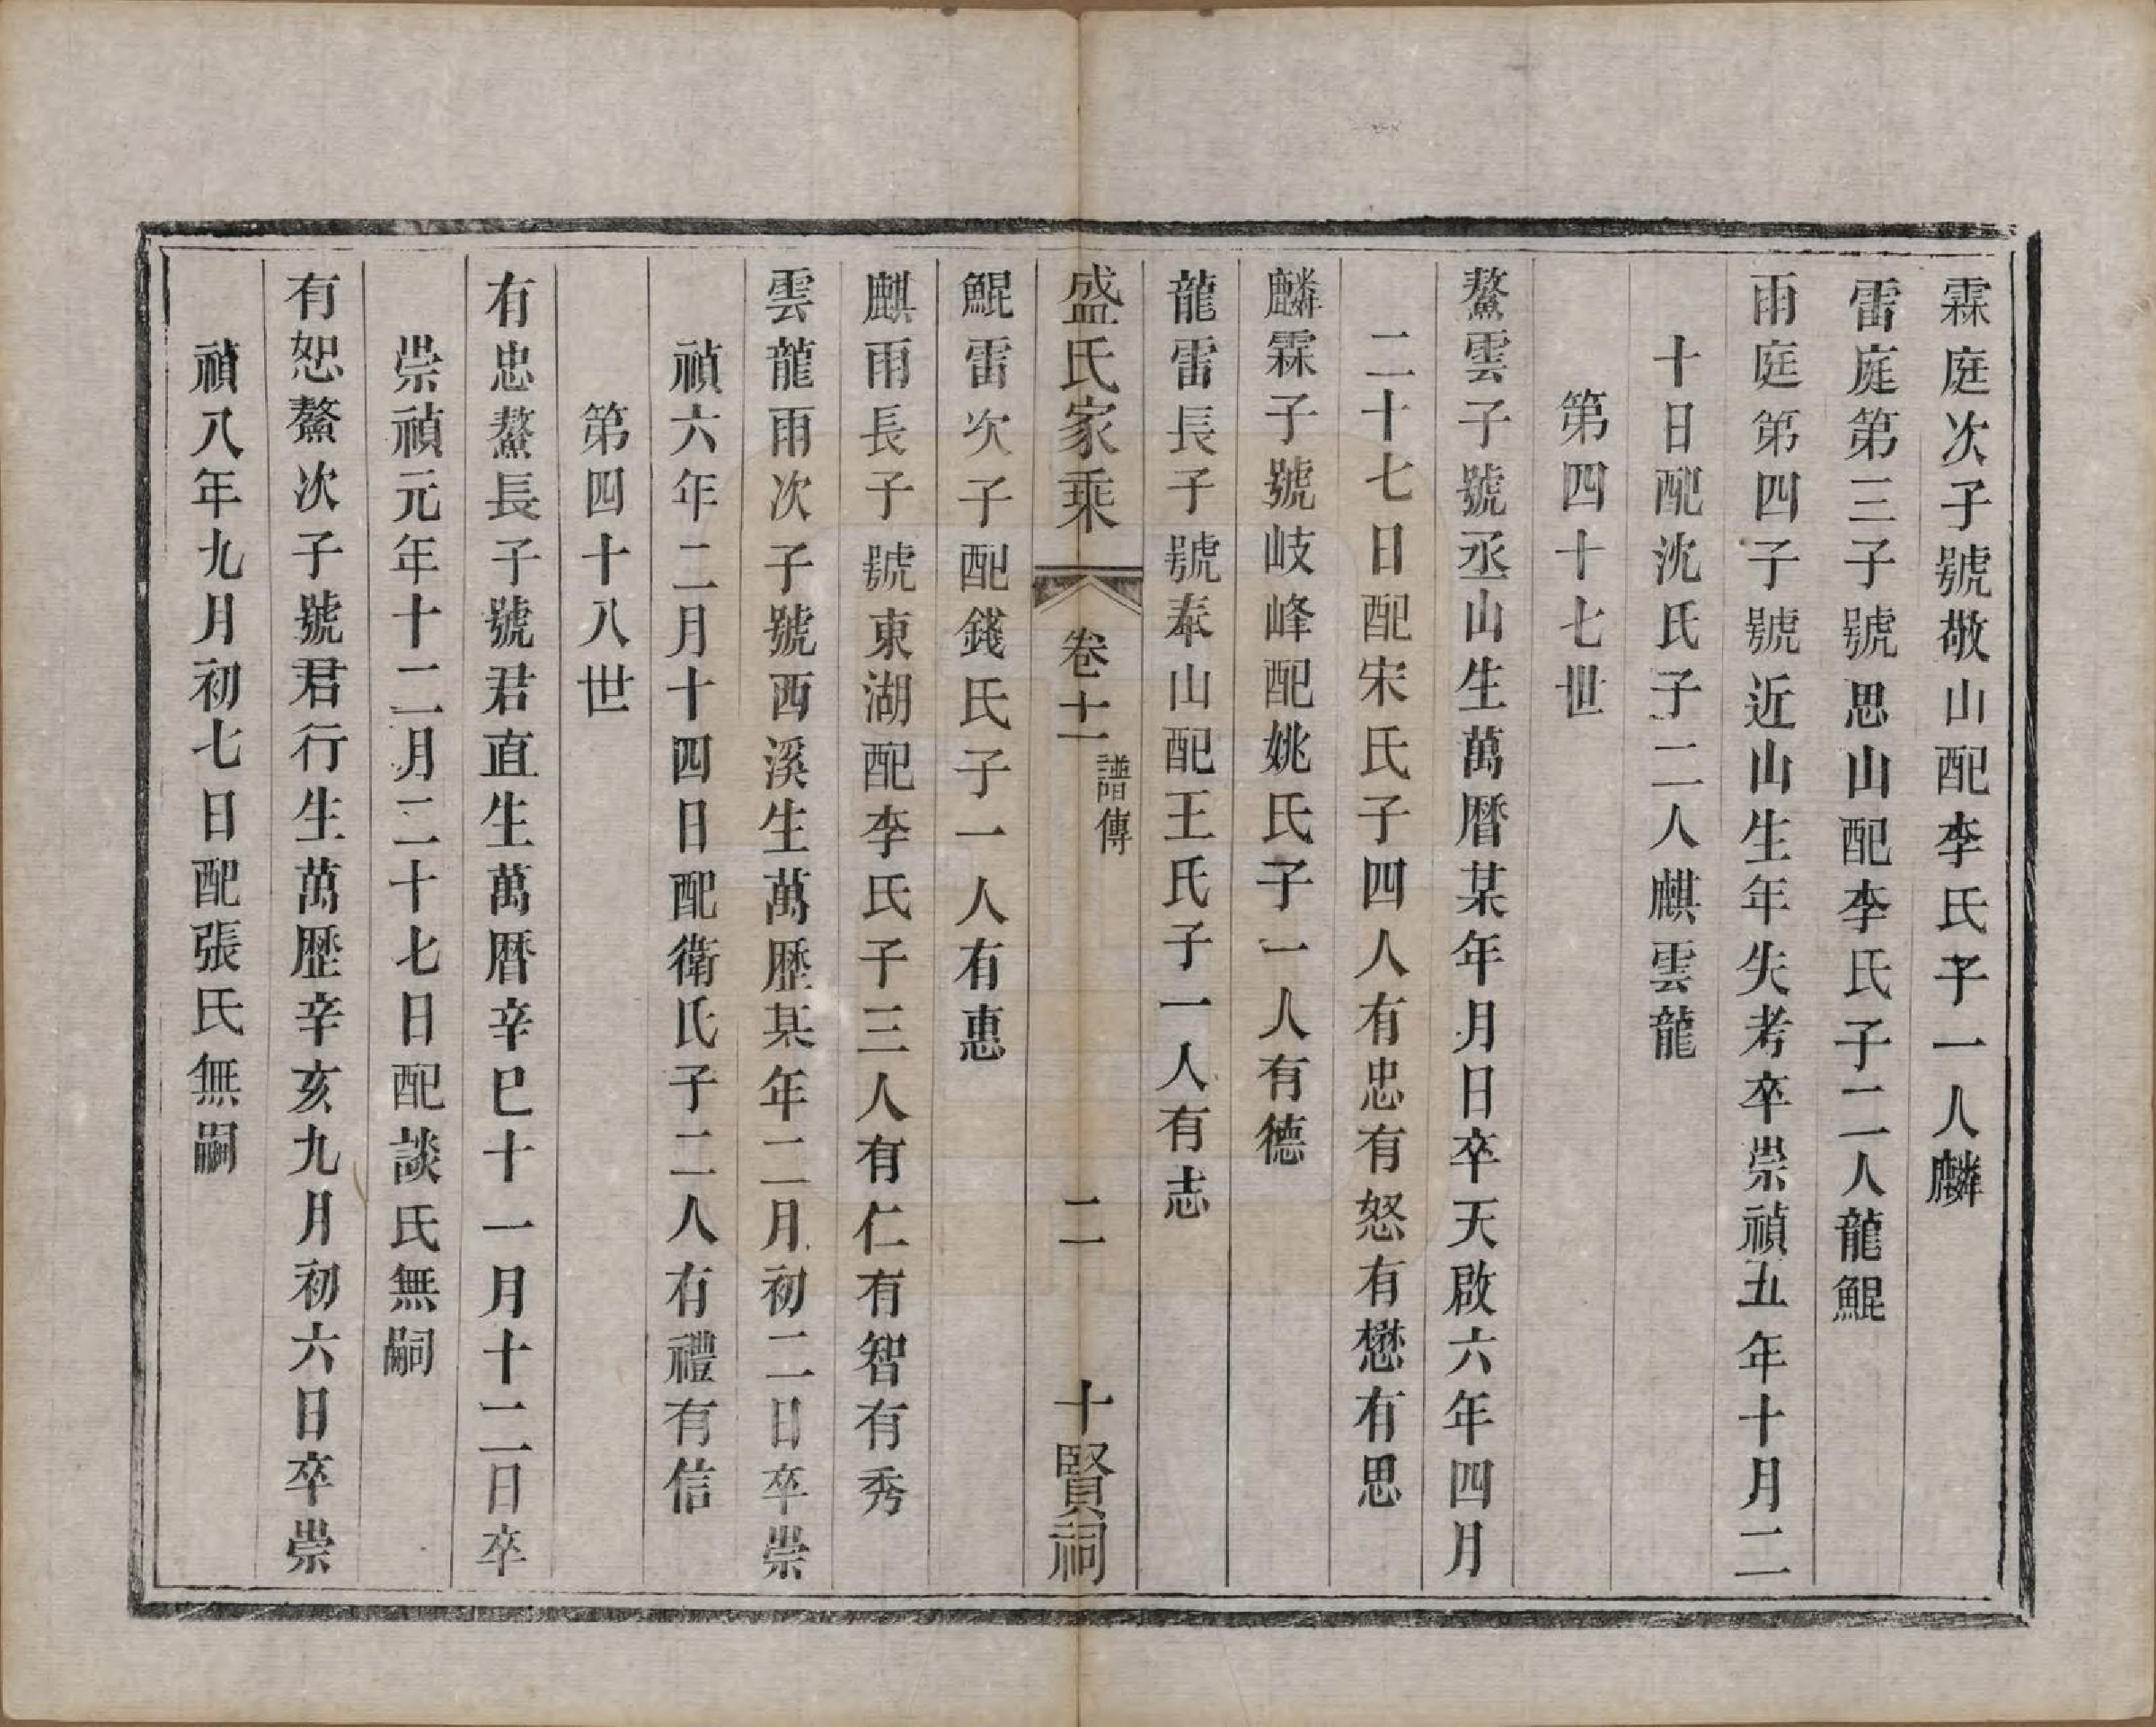 霖庭次子號敬山配李氏子一人麟
雷庭第三子號思山配李氏子二人龍鯤
雨庭第四子號近山生年失考卒崇禎五年十月二
十日配沈氏子二人麒雲龍
第四十七世
鰲雲子號丞山生萬曆某年月日卒天啟六年四月
二十七日配宋氏子四人有忠有怒有懋有思
麟霖子號岐峰配姚氏子一人有德
龍雷長子號奉山配王氏子一人有志
盛氏家乘
卷十一
譜傳
二
十賢祠
鯤雷次子配錢氏子一人有惠
麒雨長子號東湖配李氏子三人有仁有智有秀
雲龍雨次子號西溪生萬歷某年二月初二日卒崇
禎六年二月十四日配衛氏子二人有禮有信
第四十八世
有忠鰲長子號君直生萬曆辛巳十一月十二日卒
崇禎元年十二月二十七日配談氏無嗣
有恕鰲次子號君行生萬歷辛亥九月初六日卒崇
禎八年九月初七日配張氏無嗣